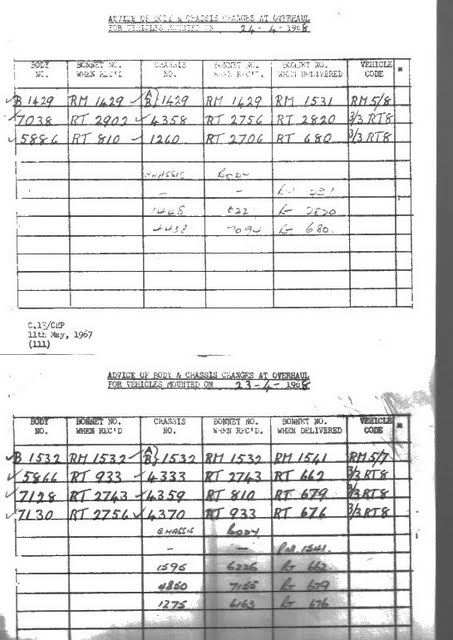 ADVICE OF BODY & CHASSIS CHANGES AT OVERHAUL
FOR VEHICLES MOUNTED ON 24-4-1968
BODY NO. BONNET NO. WHEN REC'D CHASSIS NO. BONNET NO. WHEN REC'D. BONNET NO. WHEN DELIVERED VEHICLE CODE *
✓B 1429 RM 1429 ✓ A/B} 1429 RM 1429 RM 1531 RM 5/8
✓7038 RT 2902 ✓ 4358 RT 2756 RT 2820 3/3 RT8
✓5886 RT 810 ✓ 1260 RT 2706 RT 680 3/3 RT8
CHASSIS BODY
- -
1448 2820
7094 680
C.13/CEP
11th May, 1967
(111)
ADVICE OF BODY & CHASSIS CHANGES AT OVERHAUL
FOR VEHICLES MOUNTED ON 23-4-1968
BODY NO. BONNET NO. WHEN REC'D CHASSIS NO. BONNET NO. WHEN REC'D. BONNET NO. WHEN DELIVERED VEHICLE CODE *
✓B 1532 RM 1532 ✓ A/B} 1532 RM 1532 RM 1541 RM 5/7
✓5866 RT 933 ✓ 4333 RT 2743 RT 662 3/3 RT8
✓7128 RT 2743 ✓ 4359 RT 810 RT 679 3/3 RT8
✓7130 RT 2756 ✓ 4370 RT 933 RT 676 3/3 RT8
CHASSIS BODY
- - RM 1541.
1595 6226 Rt 662
4850 7155 Rt 679
1275 6163 Rt 676